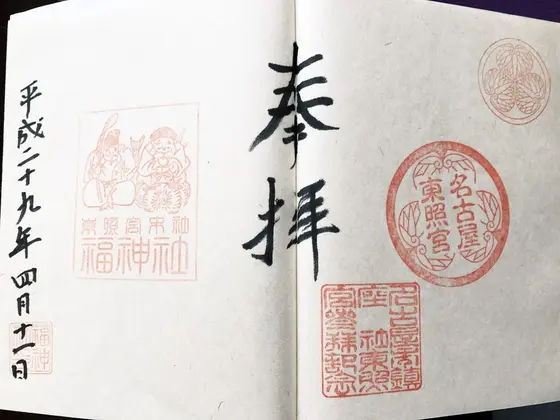 名古屋
東照宮
名古屋市鎮
座 社東照
宮参拝記念
奉拝
東照宮末社
福神社
平成二十九年四月十一日